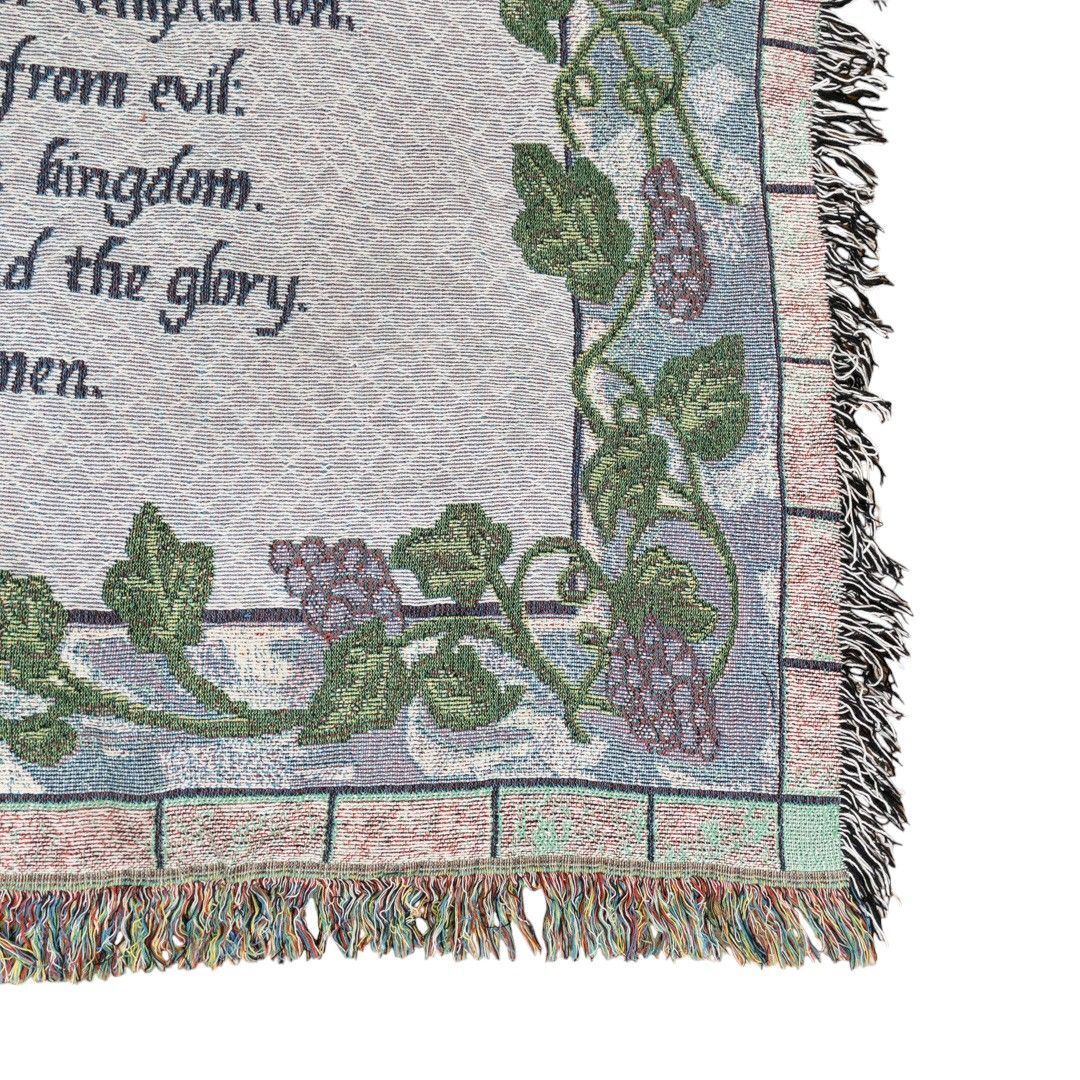 temptation.
from evil:
kingdom.
the glory.